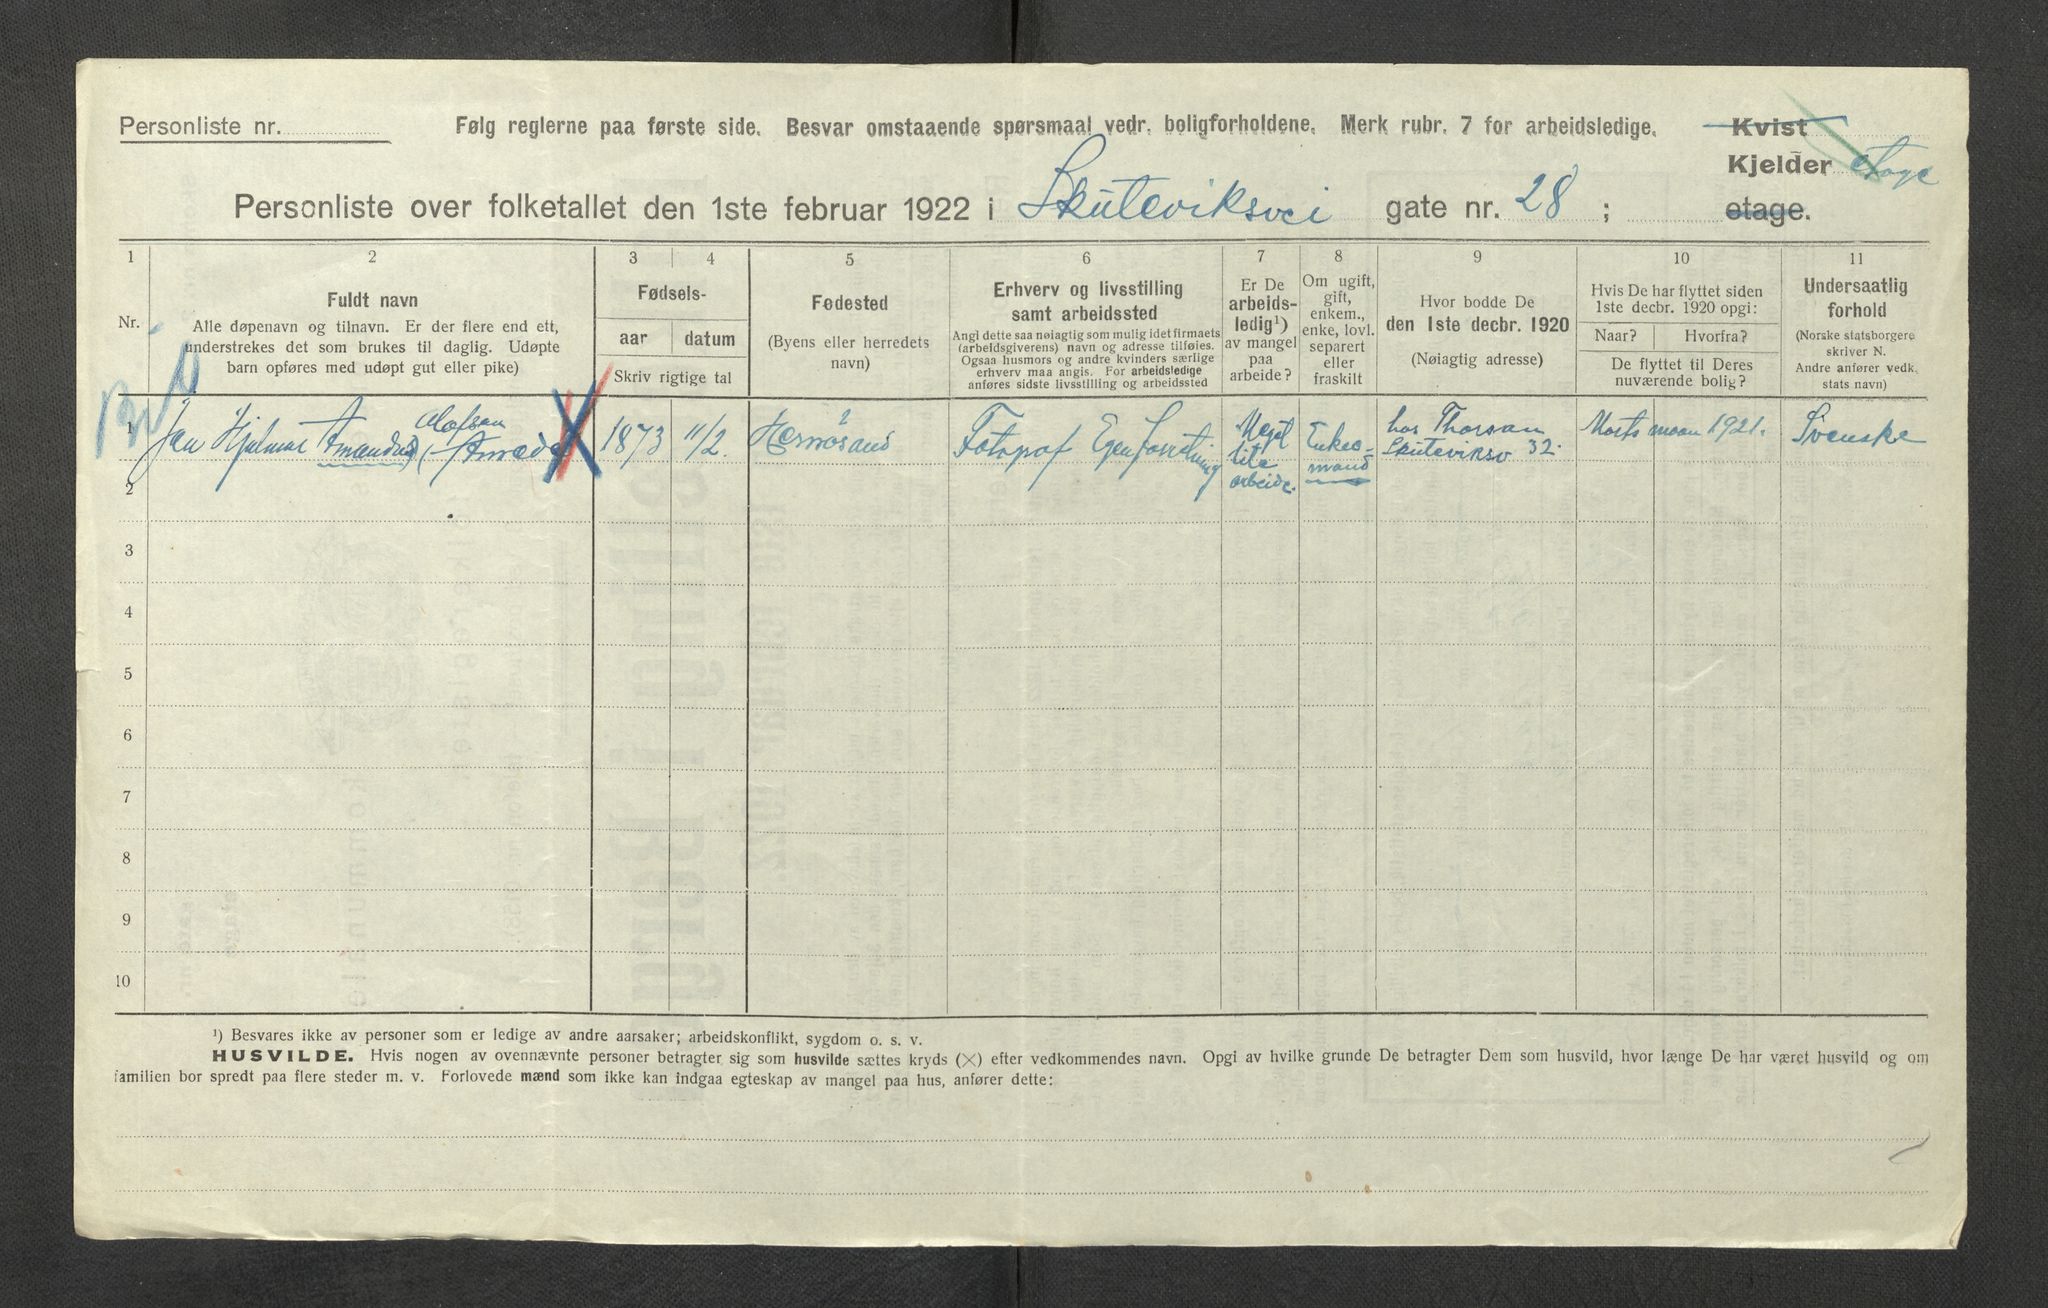 Personliste nr.
Følg reglerne paa første side. Besvar omstaaende spørsmaal vedr. boligforholdene. Merk rubr. 7 for arbeidsledige.
Kvist
Kjelder etage
etage.
Personliste over folketallet den 1ste februar 1922 i Skuteviksvei gate nr. 28 ;
1 2 3 4 5 6 7 8 9 10 11
Nr.
Fuldt navn
Alle døpenavn og tilnavn. Er der flere end ett,
understrekes det som brukes til daglig. Udøpte
barn opføres med udøpt gut eller pike)
Fødsels-
aar datum
Skriv rigtige tal
Fødested
(Byens eller herredets
navn)
Erhverv og livsstilling
samt arbeidssted
Angi dette saa nøiagtig som mulig idet firmaets
(arbeidsgiverens) navn og adresse tilføies.
Ogsaa husmors og andre kvinders særlige
erhverv maa angis. For arbeidsledige
anføres sidste livsstilling og arbeidssted
Er De
arbeids-
ledig¹)
av mangel
paa
arbeide?
Om ugift,
gift,
enkem.,
enke, lovl.
separert
eller
fraskilt
Hvor bodde De
den 1ste decbr. 1920
(Nøiagtig adresse)
Hvis De har flyttet siden
1ste decbr. 1920 opgi:
Naar? Hvorfra?
De flyttet til Deres
nuværende bolig?
Undersaatlig
forhold
(Norske statsborgere
skriver N.
Andre anfører vedk.
stats navn)
Olofson
1 Jan Hjalmar 1873 11/2. Hernösand Fotograf Egen Forretning
Meget
lite
arbeide.
Enke-
mand
hos Thorsen
Skuteviksv 32.
1921.
Svenske
2
3
4
5
6
7
8
9
10
¹) Besvares ikke av personer som er ledige av andre aarsaker; arbeidskonflikt, sygdom o. s. v.
HUSVILDE. Hvis nogen av ovennævnte personer betragter sig som husvilde sættes kryds (×) efter vedkommendes navn. Opgi av hvilke grunde De betragter Dem som husvild, hvor længe De har været husvild og om
familien bor spredt paa flere steder m. v. Forlovede mænd som ikke kan indgaa egteskap av mangel paa hus, anfører dette: